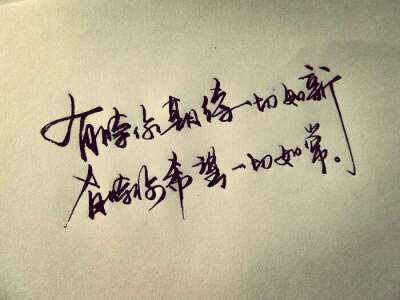 有时你期待一切如新
有时你希望一切如常。